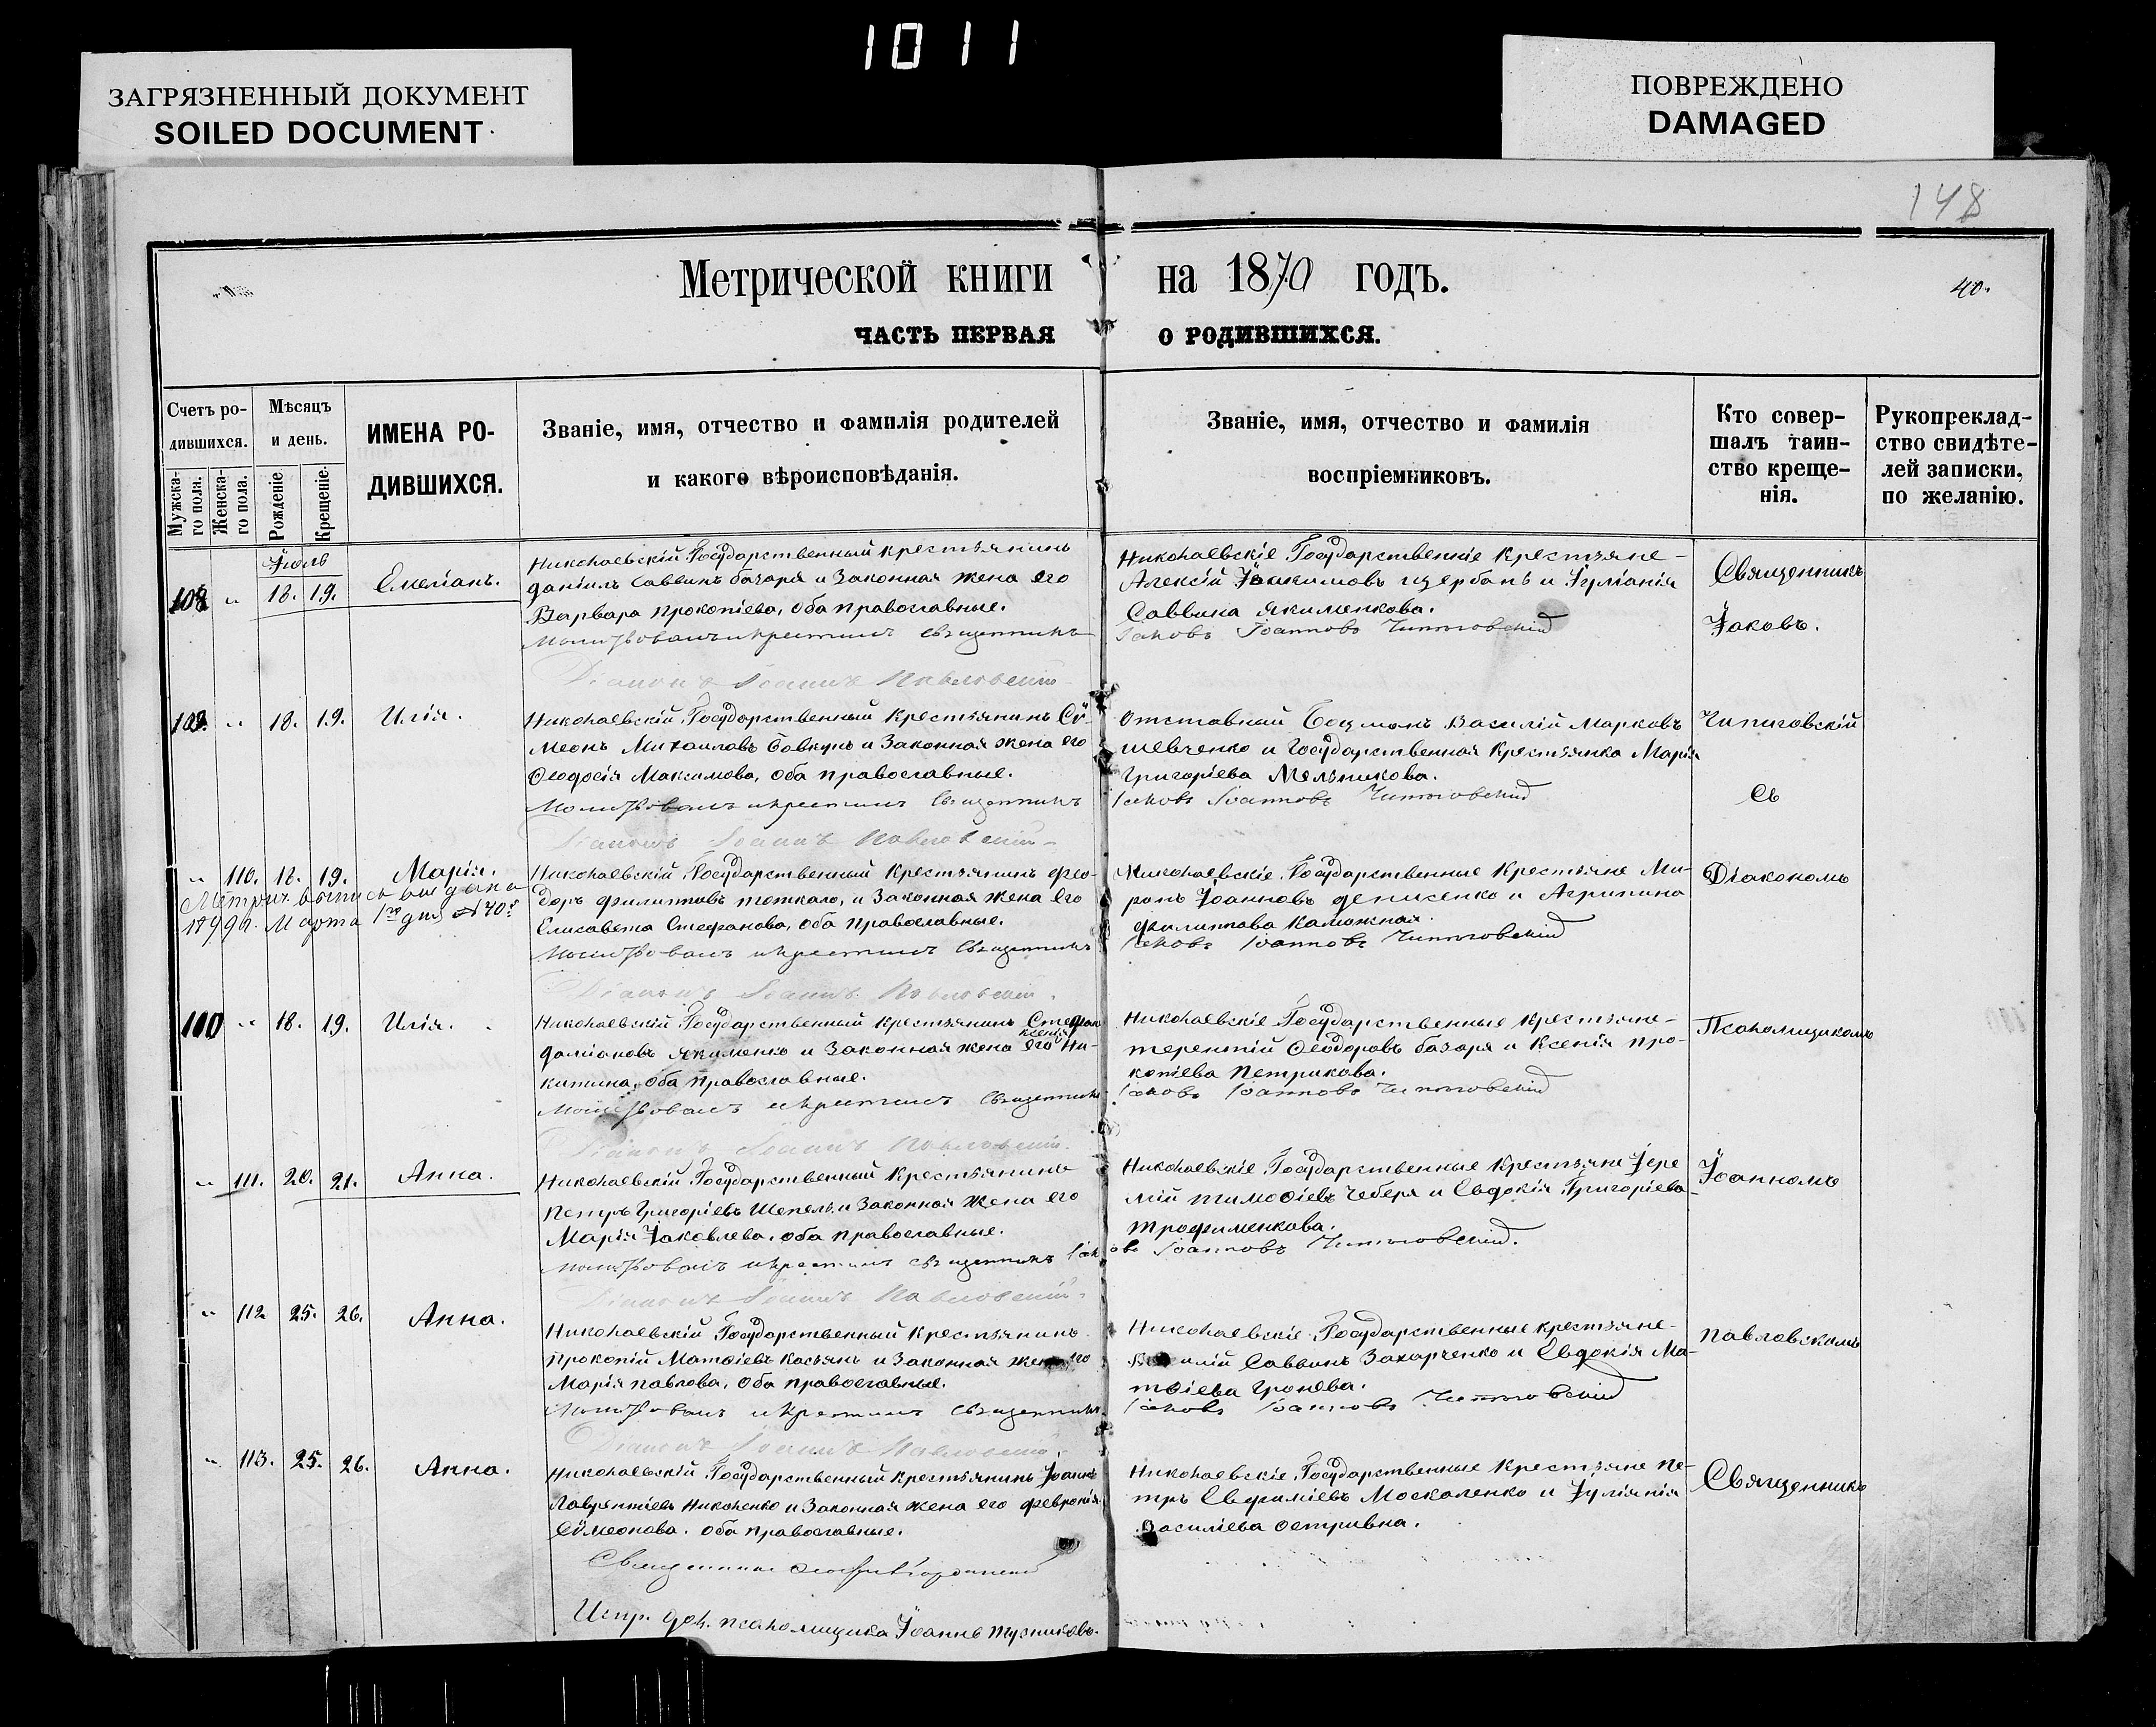 1011
ЗАГРЯЗНЕННЫЙ ДОКУМЕНТ
SOILED DOCUMENT
ПОВРЕЖДЕНО
DAMAGED
148
Метрической книги на 1870 годъ.
40.
ЧАСТЬ ПЕРВАЯ О РОДИВШИХСЯ.
Счетъ ро-
дившихся.
Мужска-
го пола.
Женска-
го пола.
Мѣсяцъ
и день.
Рожденіе
Крещеніе.
ИМЕНА РО-
ДИВШИХСЯ.
Званіе, имя, отчество и фамилія родителей
и какого вѣроисповѣданія.
Званіе, имя, отчество и фамилія
воспріемниковъ.
Кто совер-
шалъ таин-
ство креще-
нія.
Рукоприклад-
ство свидѣте-
лей записки,
по желанію.
Іюль
108 " 18. 19. Емеліанъ.
Николаевскій Государственный крестьянинъ
Даніилъ Саввинъ базаря и Законная жена его
Варвара Прокопіева, оба православные.
Молитвовалъ и крестилъ священникъ
Николаевскіе Государственніе крестьяне
Алексій Іоакимовъ Щербанъ и Іуліанія
Саввина Якименкова.
Іаковъ Іоанновъ
Священникъ
Іаковъ.
Діаконъ Іоаннъ Павловскій
109. " 18. 19. Илія.
Николаевскій Государственный Крестьянинъ Сѵ-
меонъ Михаиловъ Бовкунъ и Законная жена его
Ѳеодосія Максимова, оба православные.
Молитвовалъ и крестилъ Священникъ
Отставный Боцманъ Василій Марковъ
Шевченко и Государственная Крестьянка Марія
Григоріева Мельникова.
Іаковъ Іоанновъ
съ
Діаконъ Іоаннъ Павловскій
" 110. 18. 19. Марія.
Метрич. выпись выдана
1899 г. Марта 1го дня № 40.
Николаевскій Государственный Крестьянинъ Фео-
доръ Филипповъ и Законная жена его
Елисавета Стефанова, оба православные.
Молитвовалъ и крестилъ Священникъ
Николаевскіе Государственные Крестьяне Ми-
ронъ Іоанновъ Денисенко и Агрипина
Филиппова
Іаковъ Іоанновъ
Діакономъ
Діаконъ Іоаннъ Павловскій
110 " 18. 19. Илія.
Николаевскій Государственный крестьянинъ Стефан
Даміановъ Якименко и Законная жена его ксенія Ни-
китина, оба православные.
Молитвовалъ и крестилъ Священникъ
Николаевскіе Государственные Крестьяне
Терентій Ѳеодоровъ базаря и Ксенія Про-
копіева Петрикова.
Іаковъ Іоанновъ
Псаломщикомъ
Діаконъ Іоаннъ Павловскій
" 111. 20. 21. Анна.
Николаевскій Государственный Крестьянинъ
Петръ Григоріевъ Шепель и Законная жена его
Марія Іаковлева, оба православные.
Молитвовалъ и крестилъ священникъ Іаковъ Іоанновъ
Николаевскіе Государственные Крестьяне Іере
мій Тимоѳіевъ Чеберя и Евдокія Григоріева
Трофименкова.
Іоанномъ
Діаконъ Іоаннъ Павловскій
" 112 25. 26. Анна.
Николаевскій Государственный Крестьянинъ
Прокопій Матѳіевъ Касьянъ и Законная жена его
Марія Павлова, оба православные.
Молитвовалъ и Крестилъ Священникъ
Николаевскіе Государственные крестьяне
Саввинъ Захарченко и Евдокія Ма-
тѳіева
Іаковъ Іоанновъ
Павловскимъ
Діаконъ Іоаннъ Павловскій
" 113. 25. 26. Анна.
Николаевскій Государственный Крестьянинъ Іоаннъ
Лаврентіевъ Николенко и Законная жена его Февронія
Сѵмеонова. оба православные.
Николаевскіе Государственные Крестьяне Пе-
тръ Евфиміевъ Москаленко и Іуліянія
Василіева
Священникъ
Священникъ
Испр. дол. псаломщика Іоаннъ